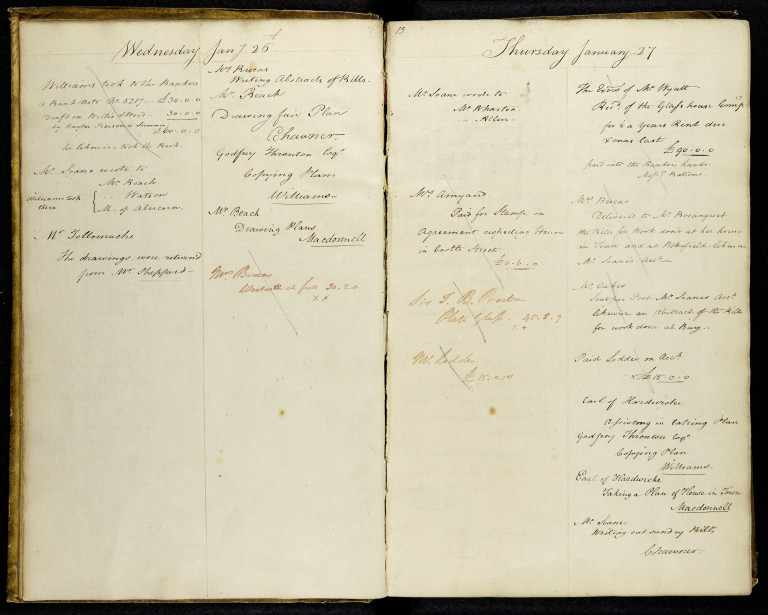 Wednesday Jan.y 26
Williams took to the Bankers
a Bank Note No 5217 - £30.0.0
Draft on Willis & Wood - 30-0-0
£60-0-0
he likewise took the Book
Mr. Soane wrote to
Mr. Beach
Williams took them
Watson
M. of Abercorn
Mr Tollemache
The drawings were returned
from Mr. Sheppard
Mrs Brocas
Writing Abstracts of Bills.
Mr. Beach
Drawing fair Plan
Chawner
Godfrey Thronton Esqr
Copying Plans
Williams
Mr. Beach
Drawing Plans
Macdonnell
Mrs Brocas
30-2.0
x x
13
Thursday January 27
Mr. Soane wrote to
Mr Wharton
Allen
Mrs. Amyand
Paid for Stamp on
Agreement respecting House
in Castle Street
£0-6-0
Sir T. B. Proctor
Plate Glass. 45.2.9
x x
Mr. Ledder
£15.0.0
The Exors of Mr Wyatt
Recd. of the Glass house Compy
for ½ a Years Rent due
Xmas last
£90-0-0
paid into the Bankers hands
Mrs Brocas
Delivered to Mr Bosanquet
the Bills for Work done at her house
in Town and at Wokefield - likewise
Mr. Soane's Acct
Mr. Oakes
Sent per Post Mr. Soanes Acct
likewise an Abstract of the Bills
for work done at Bury..
Paid Ledder on Acct
x £15-0-0
Earl of Hardwicke
Assisting in taking Plan
Godfrey Thronton Esqr
Copying Plan
Williams
Earl of Hardwicke
Taking a Plan of House in Town
Macdonnell
Mr. Soane
Writing out sundry Bills,
Chawner